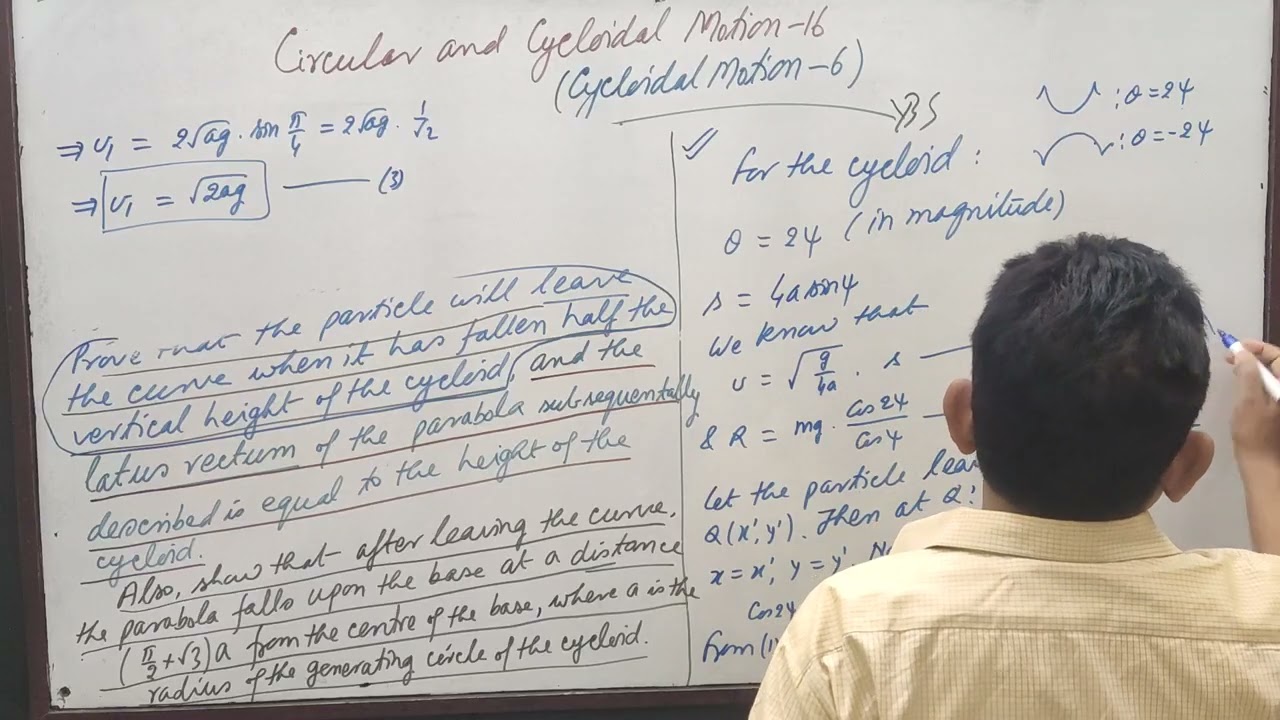 Circular and Cycloidal Motion-16
(Cycloidal Motion-6)
YBS
⇒ v₁ = 2√ag · sin π/4 = 2√ag · 1/√2
⇒ v₁ = √2ag —— (3)
Prove that the particle will leave
the curve when it has fallen half the
vertical height of the cycloid, and the
latus rectum of the parabola subsequentally
described is equal to the height of the
cycloid.
Also, show that after leaving the curve,
the parabola falls upon the base at a distance
(π/2 + √3)a from the centre of the base, where a is the
radius of the generating circle of the cycloid.
: θ = 2ψ
: θ = -2ψ
for the cycloid :
θ = 2ψ (in magnitude)
s = 4a sinψ
We know that
v = √g/4a · s —
& R = mg · cos2ψ/cosψ —
Let the particle
Q(x', y'). Then at Q:
x = x', y = y'.
cos2ψ
from (1)